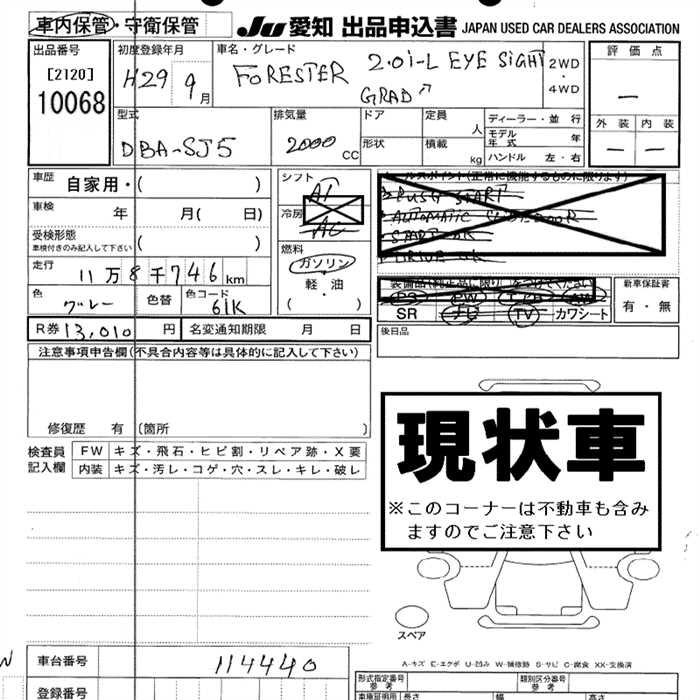 車内保管・守衛保管
JU 愛知 出品申込書 JAPAN USED CAR DEALERS ASSOCIATION
出品番号
[2120]
10068
初度登録年月
H29 9月
車名・グレード
FORESTER 2.0i-L EYE SIGHT
GRAD
2WD
・
4WD
評価点
—
外装 内装
— —
型式
DBA-SJ5
排気量
2000 CC
ドア
形状
定員 人
積載 kg
ディーラー・並行
モデル年式 年
ハンドル 左・右
車歴 自家用・( )
車検 年 月( 日)
受検形態
車検付きのみ記入して下さい ( )
走行 11万8千746km
色 グレー 色替 色コード 61K
シフト
AT
冷房
AC
燃料
ガソリン
・
軽・油
( ・ )
セールスポイント(正常に機能するものに限ります)
PUSH START
AUTOMATIC
START OK
DRIVE OK
装備品(純正品に限り)をつけてください
PS PW AW
SR TV カワシート
新車保証書
有・無
R券 13,010円 名変通知期限 月 日
後日品
注意事項申告欄(不具合内容等は具体的に記入して下さい)
修復歴 有 (箇所 )
検査員
記入欄
FW キズ・飛石・ヒビ割・リペア跡・X要
内装 キズ・汚レ・コゲ・穴・スレ・キレ・破レ
現状車
※このコーナーは不動車も含み
ますのでご注意下さい
スペア
A-キズ E-エクボ U-凹み W-補修跡 S-サビ C-腐食 XX-交換済
車台番号 114440
登録番号
形式指定番号
参考
類別区分番号
参考
車検証明用 長さ 幅 高さ